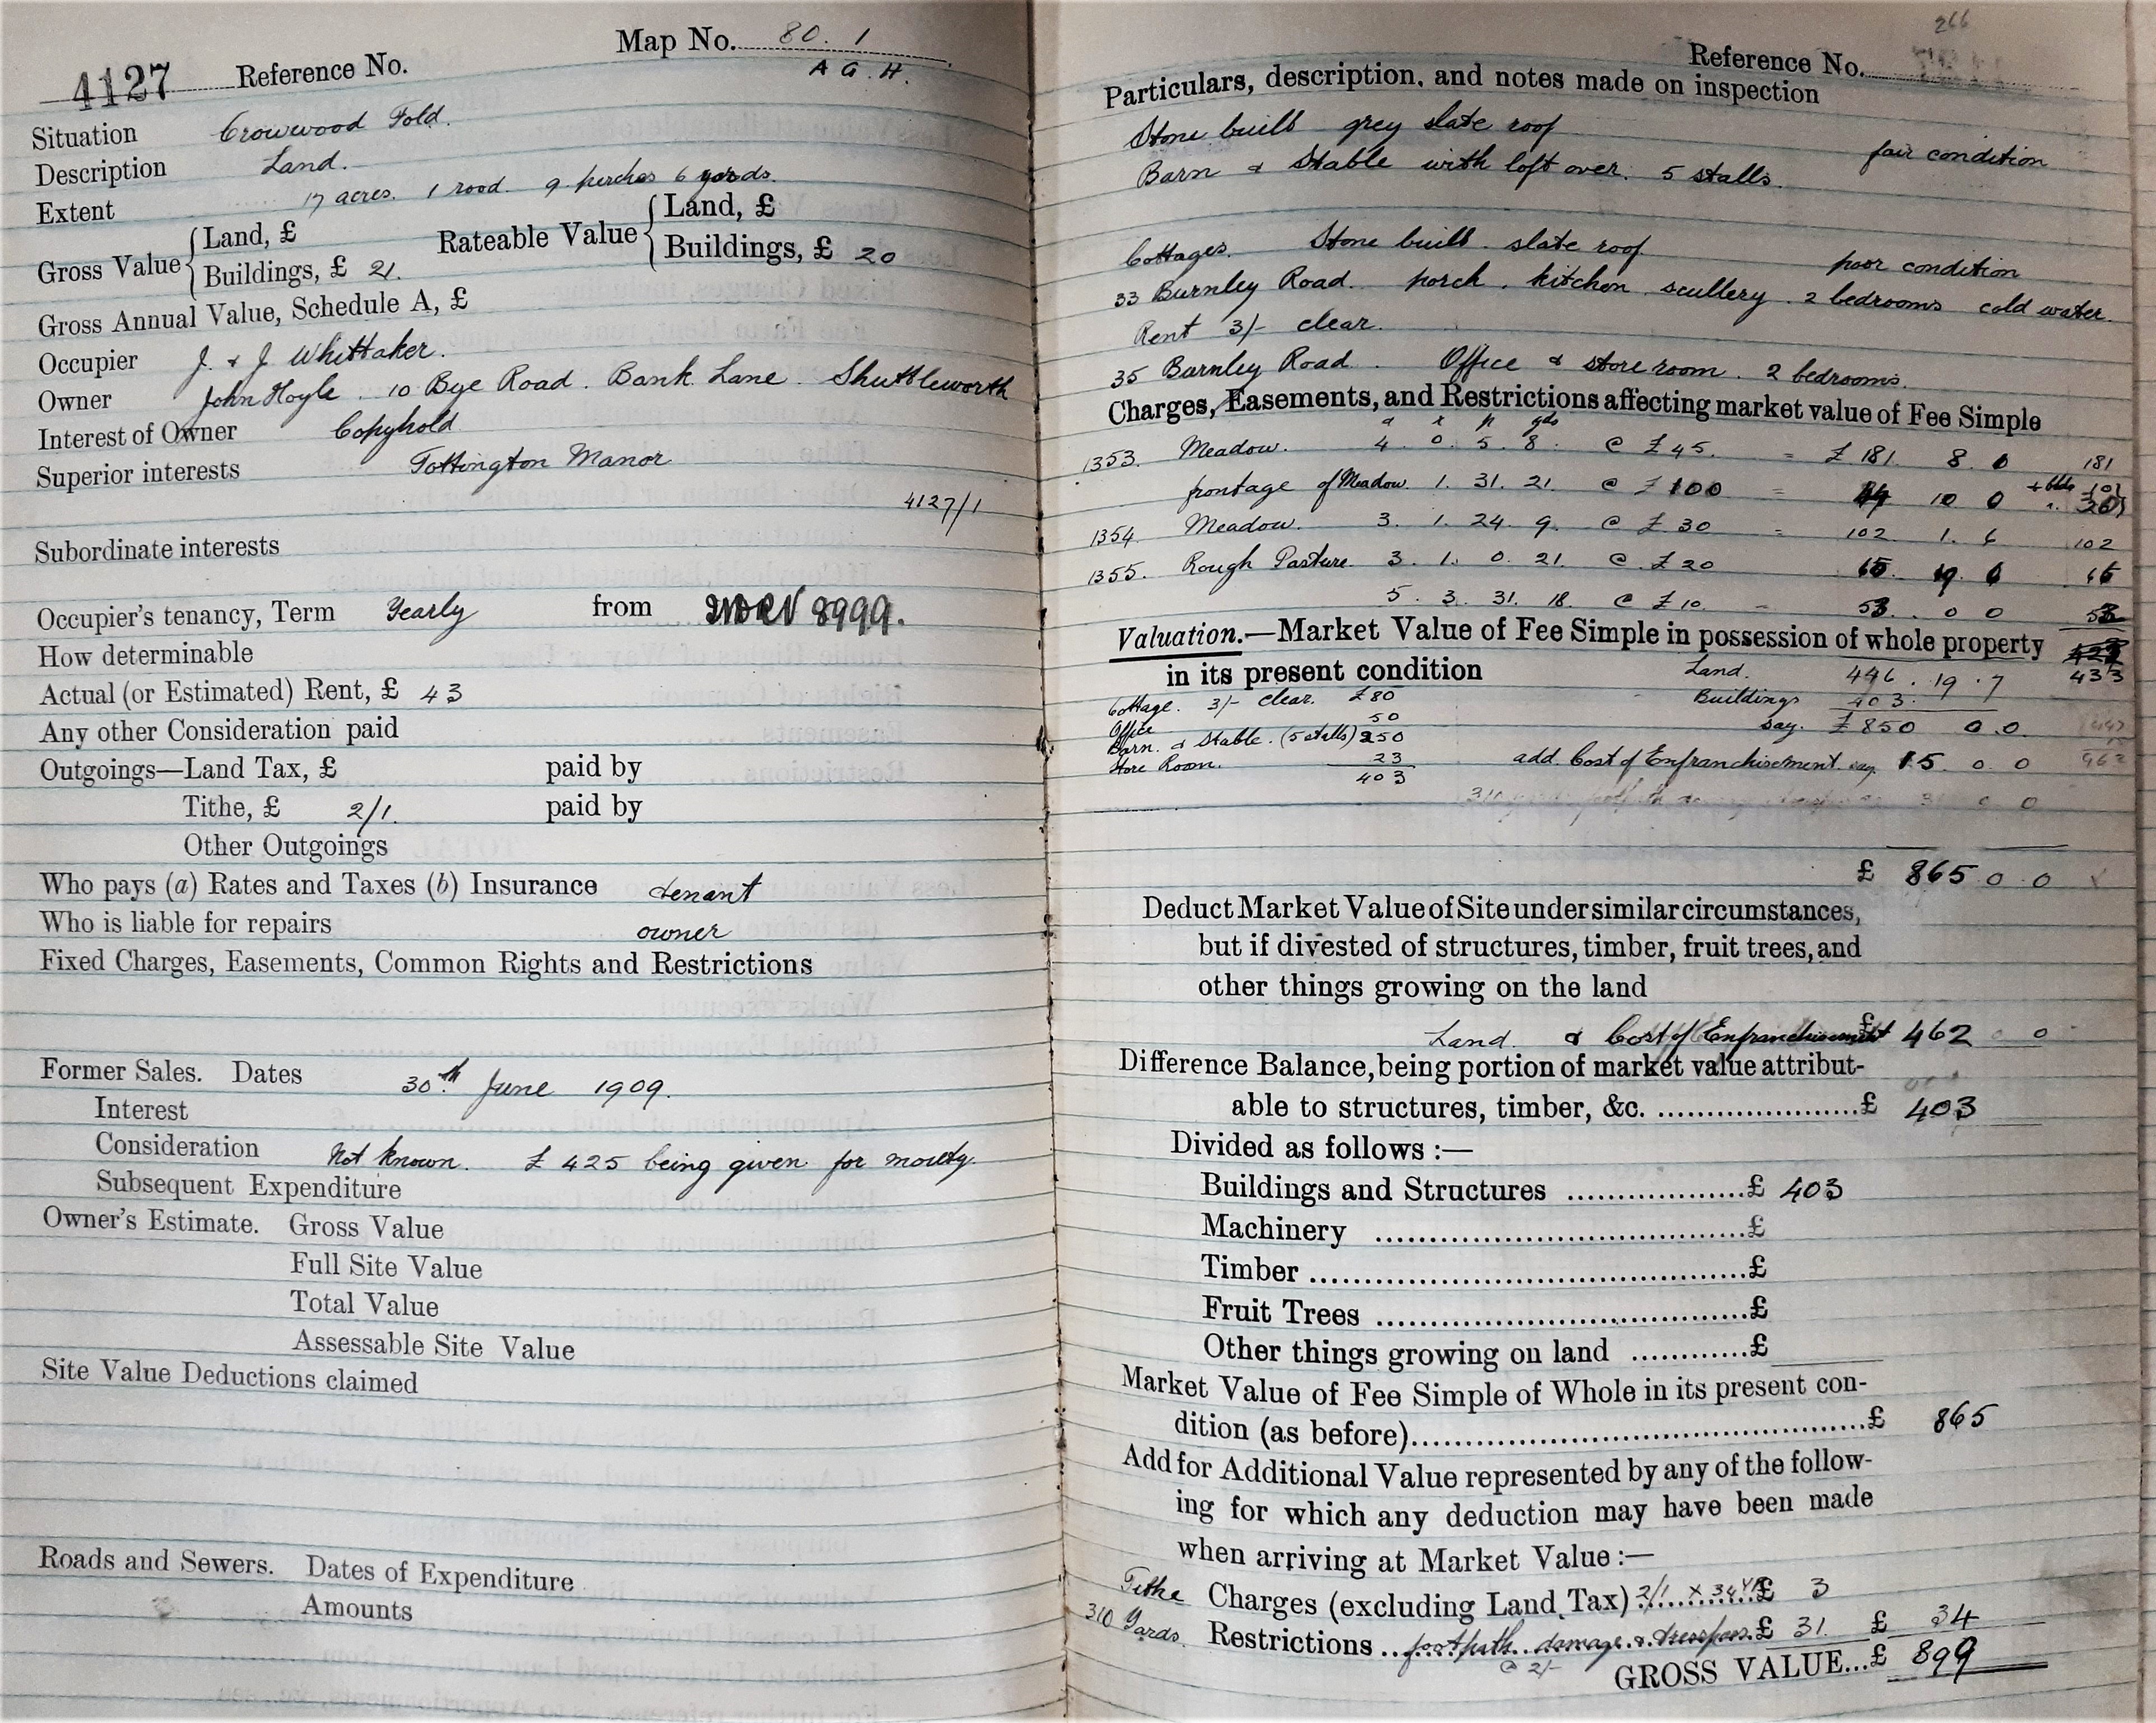 Map No. 80.1
4127 Reference No. A G. H.
Situation Crowwood Fold.
Description Land.
Extent 17 acres. 1 rood. 9 perches 6 yards.
Gross Value { Land, £ Rateable Value { Land, £
Buildings, £ 21. Buildings, £ 20
Gross Annual Value, Schedule A, £
Occupier J. & J Whittaker.
Owner John Hoyle. 10 Bye Road. Bank Lane. Shuttleworth
Interest of Owner Copyhold
Superior interests Tottington Manor
4127/1
Subordinate interests
Occupier's tenancy, Term Yearly from
How determinable
Actual (or Estimated) Rent, £ 43
Any other Consideration paid
Outgoings—Land Tax, £ paid by
Tithe, £ 2/1. paid by
Other Outgoings
Who pays (a) Rates and Taxes (b) Insurance tenant
Who is liable for repairs owner
Fixed Charges, Easements, Common Rights and Restrictions
Former Sales. Dates 30th June 1909.
Interest
Consideration Not known. £425 being given for moiety.
Subsequent Expenditure
Owner's Estimate. Gross Value
Full Site Value
Total Value
Assessable Site Value
Site Value Deductions claimed
Roads and Sewers. Dates of Expenditure
Amounts
266
Reference No.
Particulars, description, and notes made on inspection
Stone built grey slate roof fair condition
Barn & Stable with loft over. 5 stalls.
Cottages. Stone built. slate roof. poor condition
33 Burnley Road. porch. kitchen. scullery. 2 bedrooms cold water.
Rent 3/- clear.
35 Burnley Road. Office & store room. 2 bedrooms.
Charges, Easements, and Restrictions affecting market value of Fee Simple
a r p yds
1353. Meadow. 4. 0. 5. 8. @ £45. = £181. 8. 0 181
frontage of Meadow. 1. 31. 21. @ £100 = 10 0
1354. Meadow. 3. 1. 24. 9. @ £30 = 102. 1. 6 102
1355. Rough Pasture. 3. 1. 0. 21. @ £20
5. 3. 31. 18. @ £10. 0 0
Valuation.—Market Value of Fee Simple in possession of whole property
in its present condition Land. 446. 19. 7 433
Cottage. 3/- clear. £80 Buildings 403.
Office 50 say. £850 0.0.
Barn. & Stable. (5 stalls) 250
Store Room. 23 add. Cost of Enfranchisement. say 15. 0. 0
403
£ 865 0. 0
Deduct Market Value of Site under similar circumstances,
but if divested of structures, timber, fruit trees, and
other things growing on the land
Land. & Cost of Enfranchisement £ 462 0 0
Difference Balance, being portion of market value attribut-
able to structures, timber, &c. £ 403
Divided as follows :—
Buildings and Structures £ 403
Machinery £
Timber £
Fruit Trees £
Other things growing on land £
Market Value of Fee Simple of Whole in its present con-
dition (as before) £ 865
Add for Additional Value represented by any of the follow-
ing for which any deduction may have been made
when arriving at Market Value :—
Tithe Charges (excluding Land Tax) 2/1 x 34 £ 3
310 Yards. Restrictions footpath damage & trespass. £ 31. £ 34
@ 2/- GROSS VALUE...£ 899